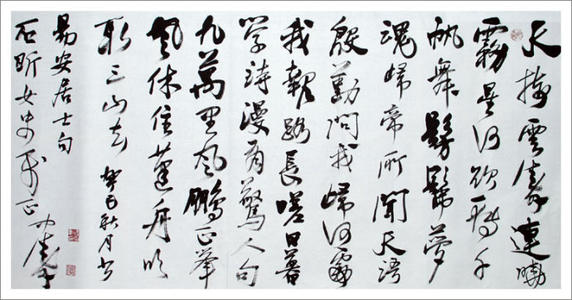 天接雲濤連曉
霧星河欲轉千
帆舞髣髴夢
魂歸帝所聞天語
殷勤問我歸何處
我報路長嗟日暮
学詩漫有驚人句
九萬里風鵬正舉
風休住蓬舟吹
取三山去 癸巳秋月书
易安居士句
石昕女史 正